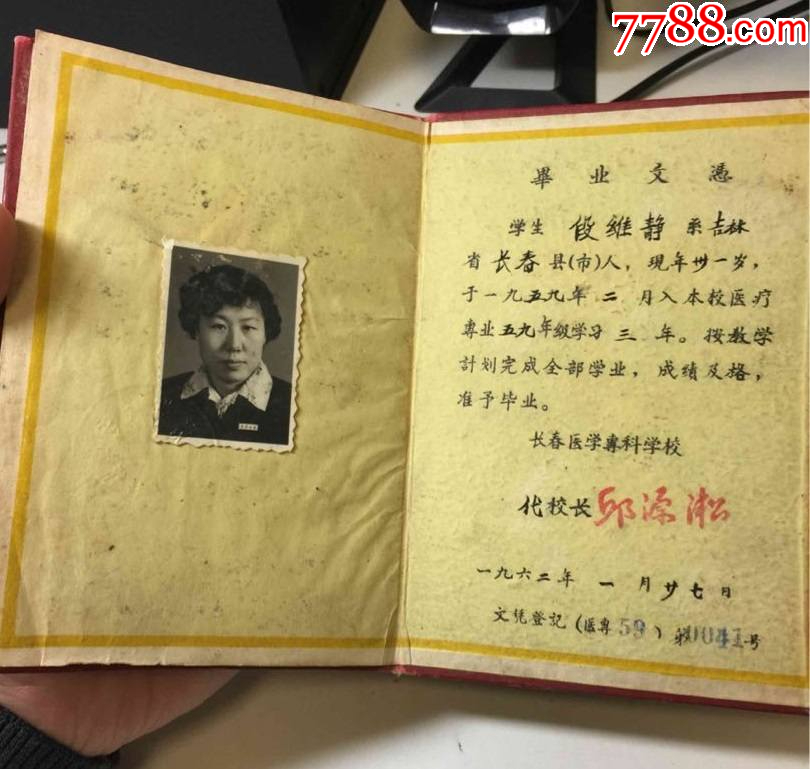 7788.com
畢业文憑
学生 段维静 系吉林
省长春县(市)人，現年卅一岁，
于一九五九年二月入本校医疗
专业五九年级学习三年。按教学
計划完成全部学业，成績及格，
准予毕业。
长春医学專科学校
代校长 邱源淞
一九六二年一月廿七日
文凭登記(医專59)第0041号